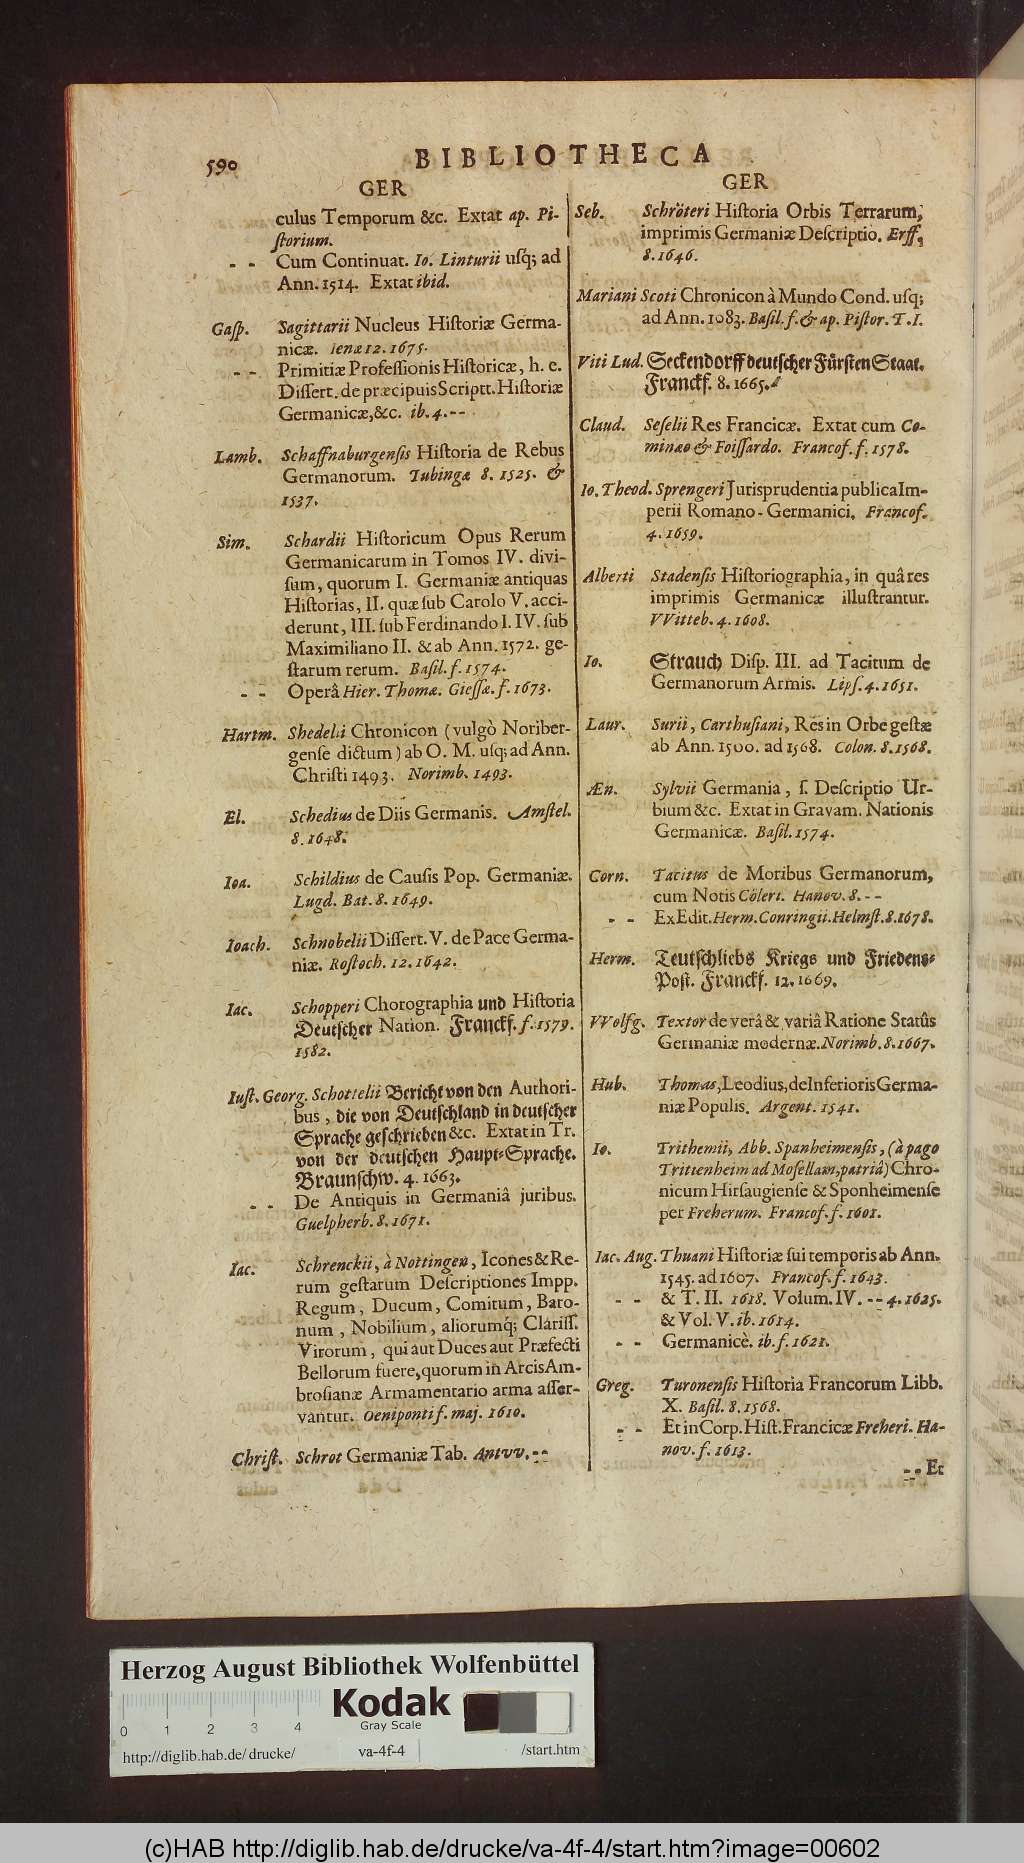 590
BIBLIOTHECA
GER
culus Temporum &c. Extat ap. Pi-
ſtorium.
- - Cum Continuat. Io. Linturii uſq; ad
Ann. 1514. Extat ibid.
Gaſp. Sagittarii Nucleus Hiſtoriæ Germa-
nicæ. Ienæ 12. 1675.
- - Primitiæ Profeſſionis Hiſtoricæ, h. e.
Diſſert. de præcipuis Scriptt. Hiſtoriæ
Germanicæ, &c. ib. 4. --
Lamb. Schaffnaburgenſis Hiſtoria de Rebus
Germanorum. Tubingæ 8. 1525. &
1537.
Sim. Schardii Hiſtoricum Opus Rerum
Germanicarum in Tomos IV. divi-
ſum, quorum I. Germaniæ antiquas
Hiſtorias, II. quæ ſub Carolo V. acci-
derunt, III. ſub Ferdinando I. IV. ſub
Maximiliano II. & ab Ann. 1572. ge-
ſtarum rerum. Baſil. f. 1574.
- - Operâ Hier. Thomæ. Gieſſæ. f. 1673.
Hartm. Shedelii Chronicon (vulgò Noriber-
genſe dictum) ab O. M. uſq; ad Ann.
Chriſti 1493. Norimb. 1493.
El. Schedius de Diis Germanis. Amſtel.
8. 1648.
Ioa. Schildius de Cauſis Pop. Germaniæ.
Lugd. Bat. 8. 1649.
Ioach. Schnobelii Diſſert. V. de Pace Germa-
niæ. Roſtoch. 12. 1642.
Iac. Schopperi Chorographia und Hiſtoria
Deutſcher Nation. Franckf. f. 1579.
1582.
Iuſt. Georg. Schottelii Bericht von den Authori-
bus, die von Deutſchland in deutſcher
Sprache geſchrieben &c. Extat in Tr.
von der deutſchen Haupt-Sprache.
Braunſchw. 4. 1663.
- - De Antiquis in Germaniâ juribus.
Guelpherb. 8. 1671.
Iac. Schrenckii, à Nottingen, Icones & Re-
rum geſtarum Deſcriptiones Impp.
Regum, Ducum, Comitum, Baro-
num, Nobilium, aliorumq́; Clariſſ.
Virorum, qui aut Duces aut Præfecti
Bellorum fuere, quorum in Arcis Am-
broſianæ Armamentario arma aſſer-
vantur. Oeniponti f. maj. 1610.
Chriſt. Schrot Germaniæ Tab. Antvv. --
GER
Seb. Schröteri Hiſtoria Orbis Terrarum,
imprimis Germaniæ Deſcriptio. Erff,
8. 1646.
Mariani Scoti Chronicon à Mundo Cond. uſq;
ad Ann. 1083. Baſil. f. & ap. Piſtor. T. I.
Viti Lud. Seckendorff deutſcher Fürſten Staat.
Franckf. 8. 1665.
Claud. Seſelii Res Francicæ. Extat cum Co-
minæo & Foiſſardo. Francof. f. 1578.
Io. Theod. Sprengeri Jurisprudentia publica Im-
perii Romano-Germanici. Francof.
4. 1659.
Alberti Stadenſis Hiſtoriographia, in quâ res
imprimis Germanicæ illuſtrantur.
VVitteb. 4. 1608.
Io. Strauch Diſp. III. ad Tacitum de
Germanorum Armis. Lipſ. 4. 1651.
Laur. Surii, Carthuſiani, Res in Orbe geſtæ
ab Ann. 1500. ad 1568. Colon. 8. 1568.
Æn. Sylvii Germania, ſ. Deſcriptio Ur-
bium &c. Extat in Gravam. Nationis
Germanicæ. Baſil. 1574.
Corn. Tacitus de Moribus Germanorum,
cum Notis Coleri. Hanov. 8. --
- - Ex Edit. Herm. Conringii. Helmſt. 8. 1678.
Herm. Teutſchliebs Kriegs und Friedens-
Poſt. Franckf. 12. 1669.
VVolfg. Textor de verâ & variâ Ratione Statûs
Germaniæ modernæ. Norimb. 8. 1667.
Hub. Thomas, Leodius, de Inferioris Germa-
niæ Populis. Argent. 1541.
Io. Trithemii, Abb. Spanheimenſis, (à pago
Trittenheim ad Moſellam, patriâ) Chro-
nicum Hirſaugienſe & Sponheimenſe
per Freherum. Francof. f. 1601.
Iac. Aug. Thuani Hiſtoriæ ſui temporis ab Ann.
1545. ad 1607. Francof. f. 1643.
- - & T. II. 1618. Volum. IV. -- 4. 1625.
& Vol. V. ib. 1614.
- - Germanicè. ib. f. 1621.
Greg. Turonenſis Hiſtoria Francorum Libb.
X. Baſil. 8. 1568.
- - Et in Corp. Hiſt. Francicæ Freheri. Ha-
nov. f. 1613.
-- Et
Herzog August Bibliothek Wolfenbüttel
Kodak
Gray Scale
0 1 2 3 4
http://diglib.hab.de/drucke/ va-4f-4 /start.htm
(c)HAB http://diglib.hab.de/drucke/va-4f-4/start.htm?image=00602